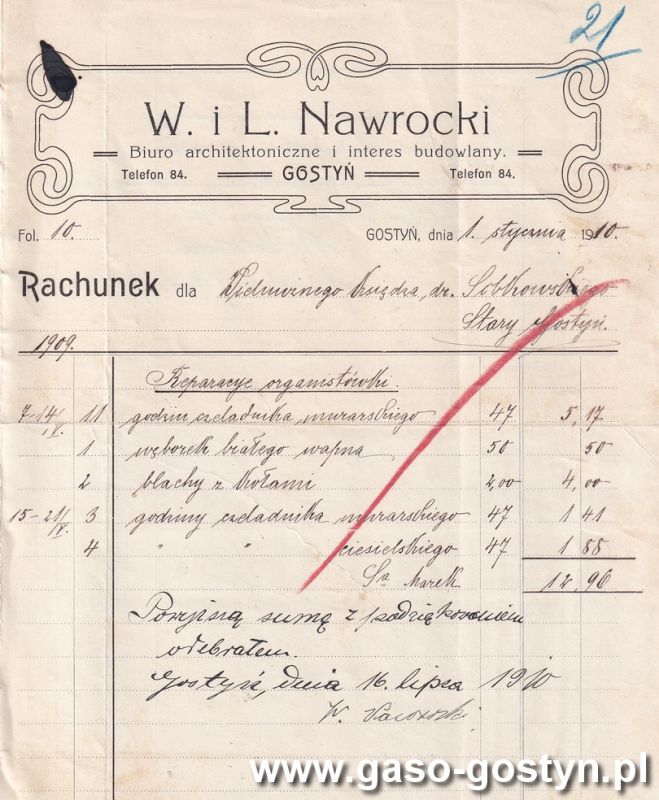 21
W. i L. Nawrocki
Biuro architektoniczne i interes budowlany.
Telefon 84. GOSTYŃ Telefon 84.
Fol. 10. GOSTYŃ, dnia 1. stycznia 1910.
Rachunek dla Księdza, dr. Sobkowskiego
Stary Gostyń.
1909.
Reparacye organistówki.
11 godzin czeladnika murarskiego 47 5,17
1 węborek białego wapna 50 50
2 blachy z 2,00 4,00
15-21/V. 3 godziny czeladnika murarskiego 47 1 41
4 " " ciesielskiego 47 1 88
Sa Marek 12,96
Powyższą sumę z podziękowaniem
odebrałem.
Gostyń, dnia 16. lipca 1910
W. Nawrocki
www.gaso-gostyn.pl